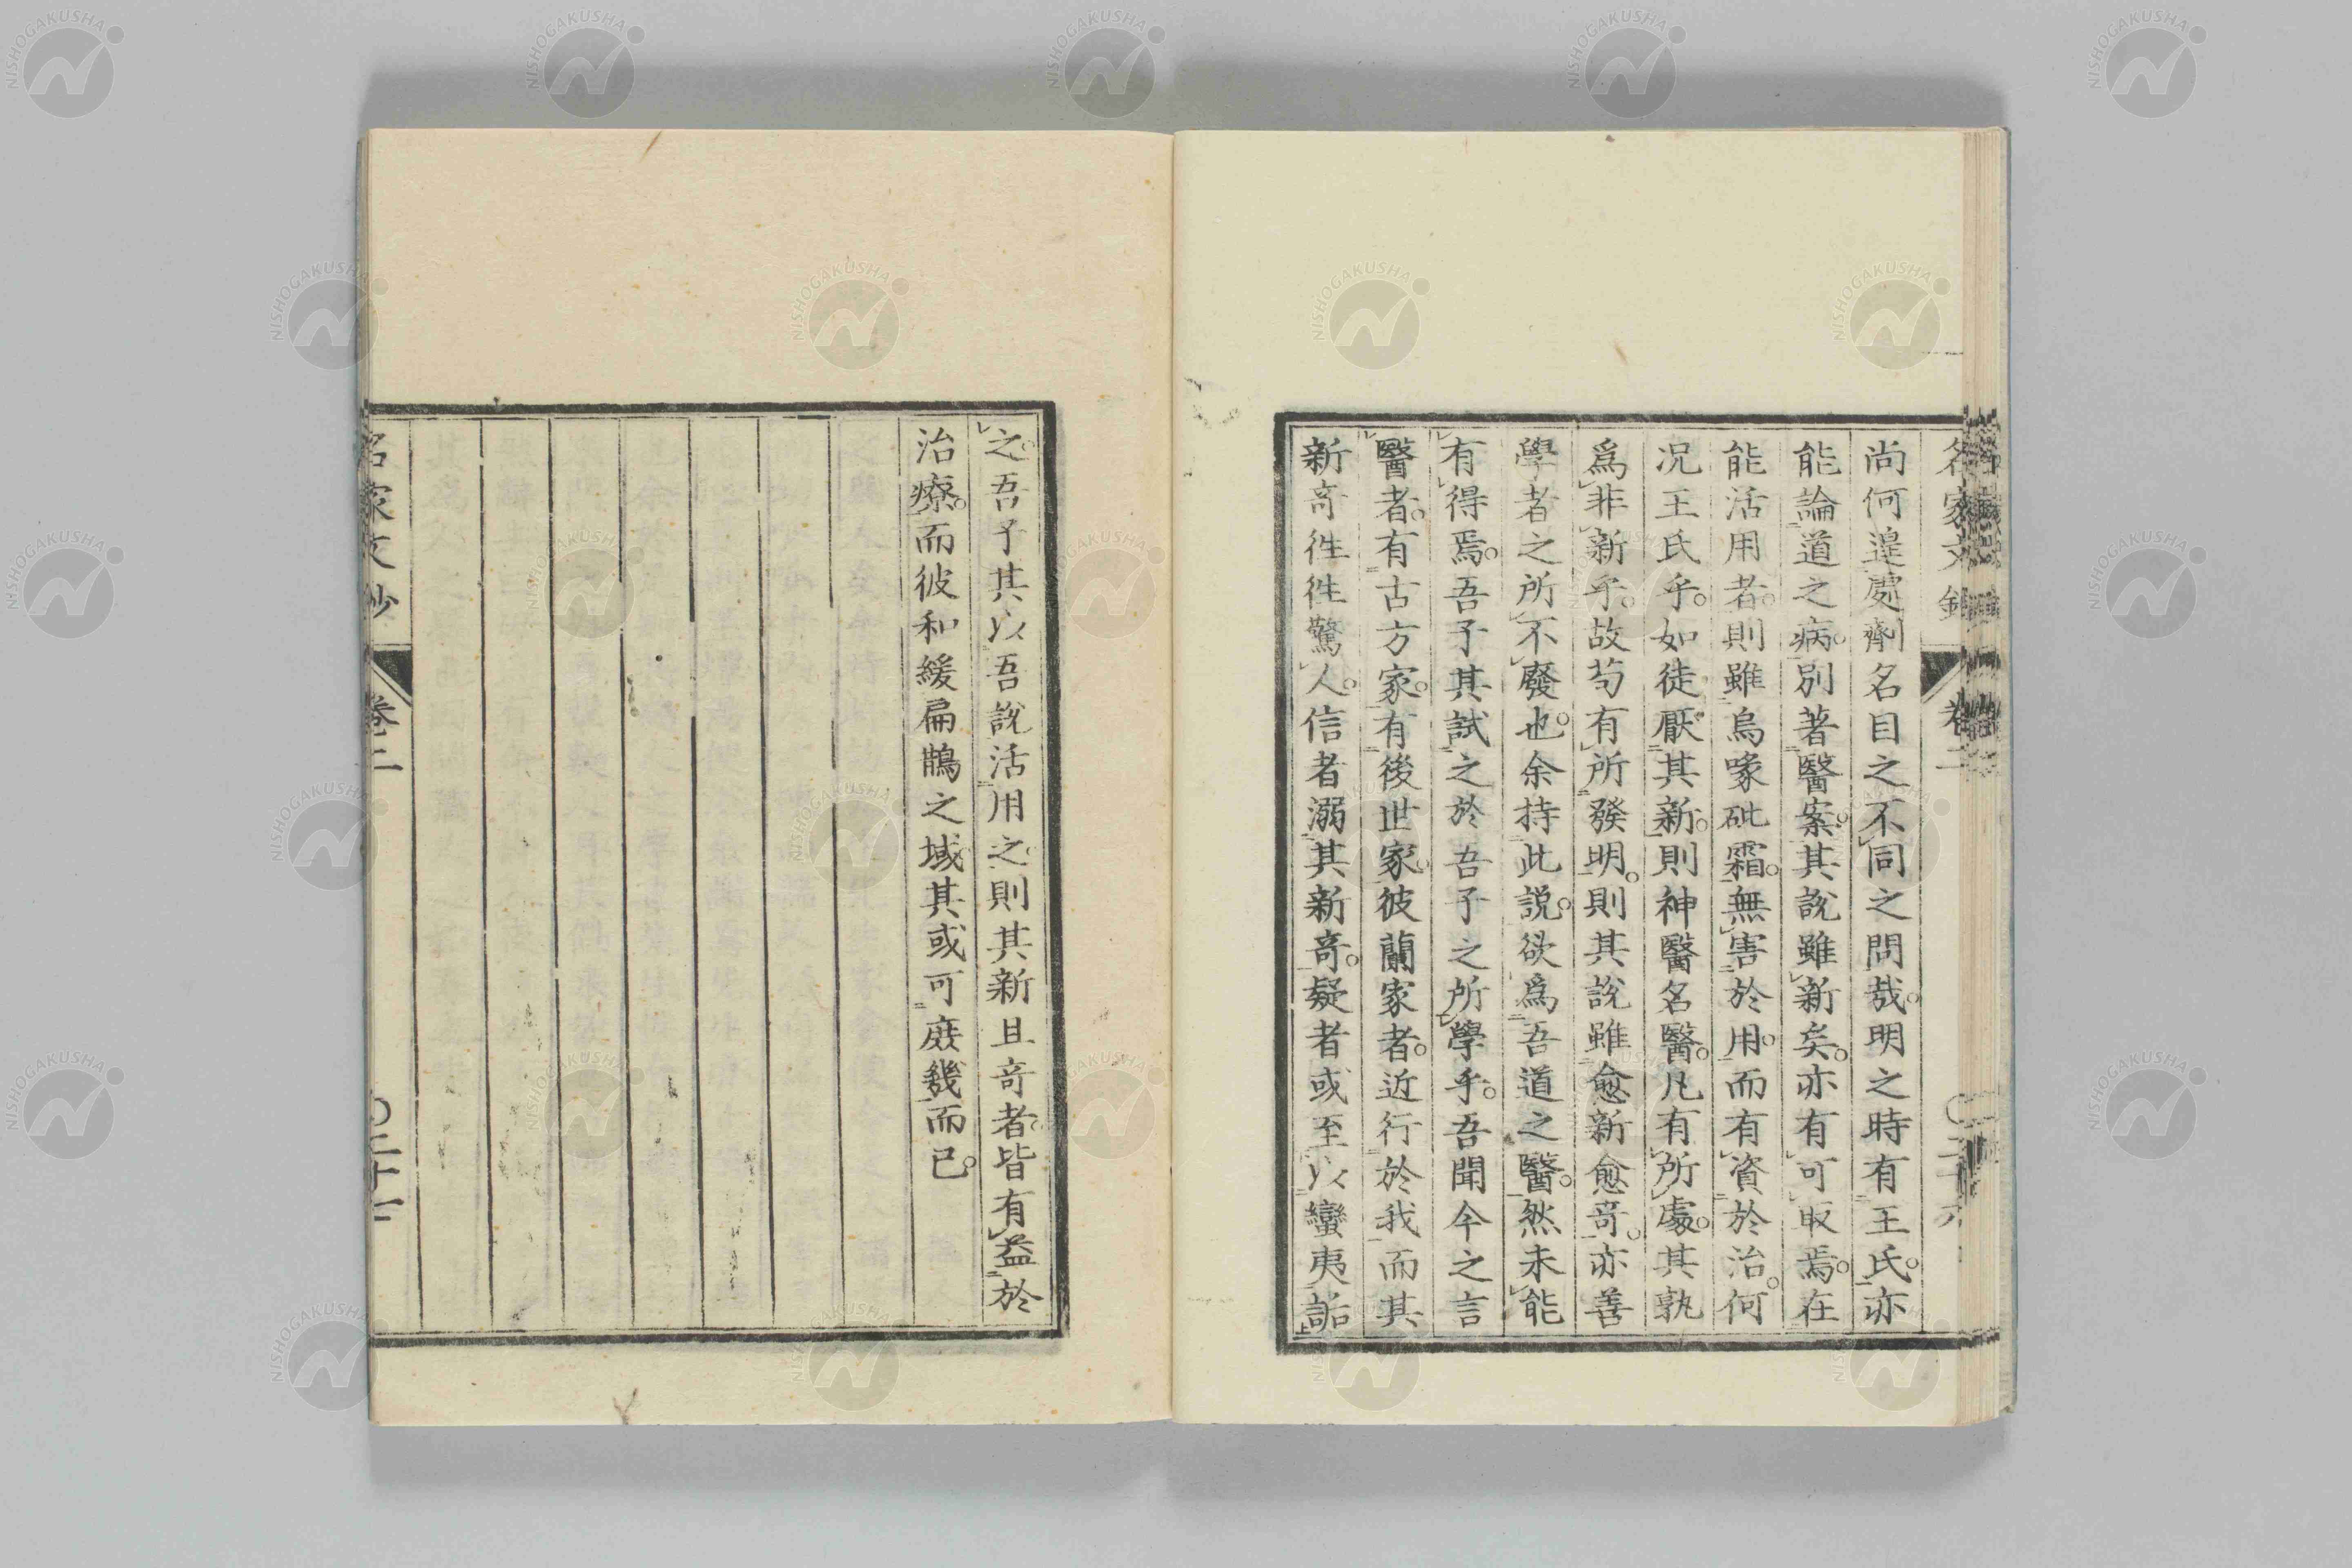 尚何遑處劑名目之不同之問哉。明之時有王氏。亦
能論道之病。別著醫案。其說雖新矣。亦有可取焉。在
能活用者。則雖烏喙砒霜。無害於用。而有資於治。何
況王氏乎。如徒厭其新。則神醫名醫。凡有所處。其孰
爲非新乎。故苟有所發明。則其說雖愈新愈奇。亦善
學者之所不廢也。余持此說。欲爲吾道之醫。然未能
有得焉。吾子其試之於吾子之所學乎。吾聞今之言
醫者。有古方家。有後世家。彼蘭家者。近行於我而其
新奇徃徃驚人。信者溺其新奇。疑者或至以蠻夷詬
之。吾子其以吾說活用之。則其新且奇者。皆有益於
治療。而彼和緩扁鵲之域。其或可庶幾而已。
名家文鈔
卷二
NISHOGAKUSHA